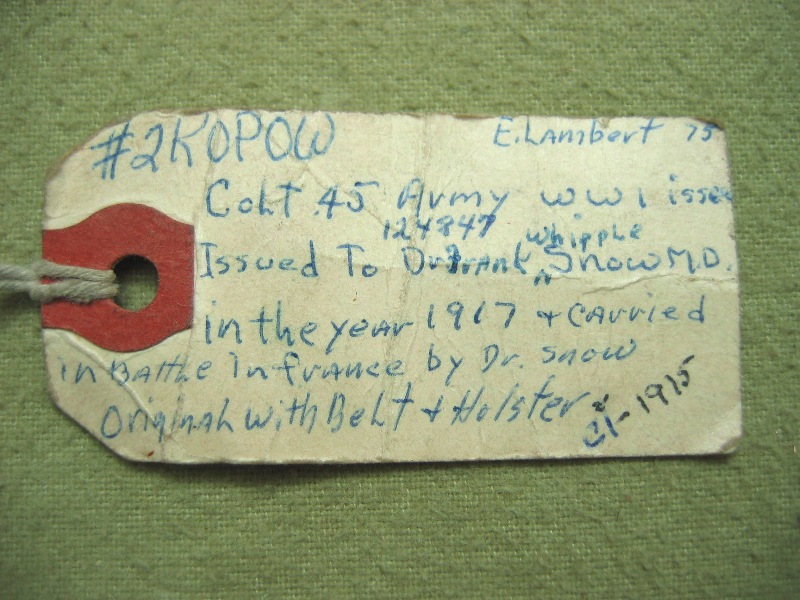 #2KOPOW
E. Lambert 75
Colt .45 Army WW1 issee
124847 Whipple
Issued To Dr Frank Snow M.D.
in the year 1917 + carried
in Battle in france by Dr. Snow
Original with Belt & Holster
1915